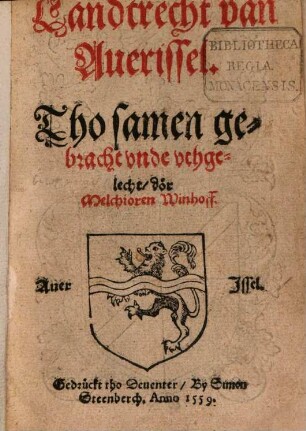 Landtrecht van
Auerissel.
BIBLIOTHECA
REGIA
MONACENSIS.
Tho samen ge-
bracht vnde vthge-
lecht/ dör
Melchioren Winhoff.
Auer Issel.
Gedrückt tho Deuenter/ By Simon
Steenberch, Anno 1559.